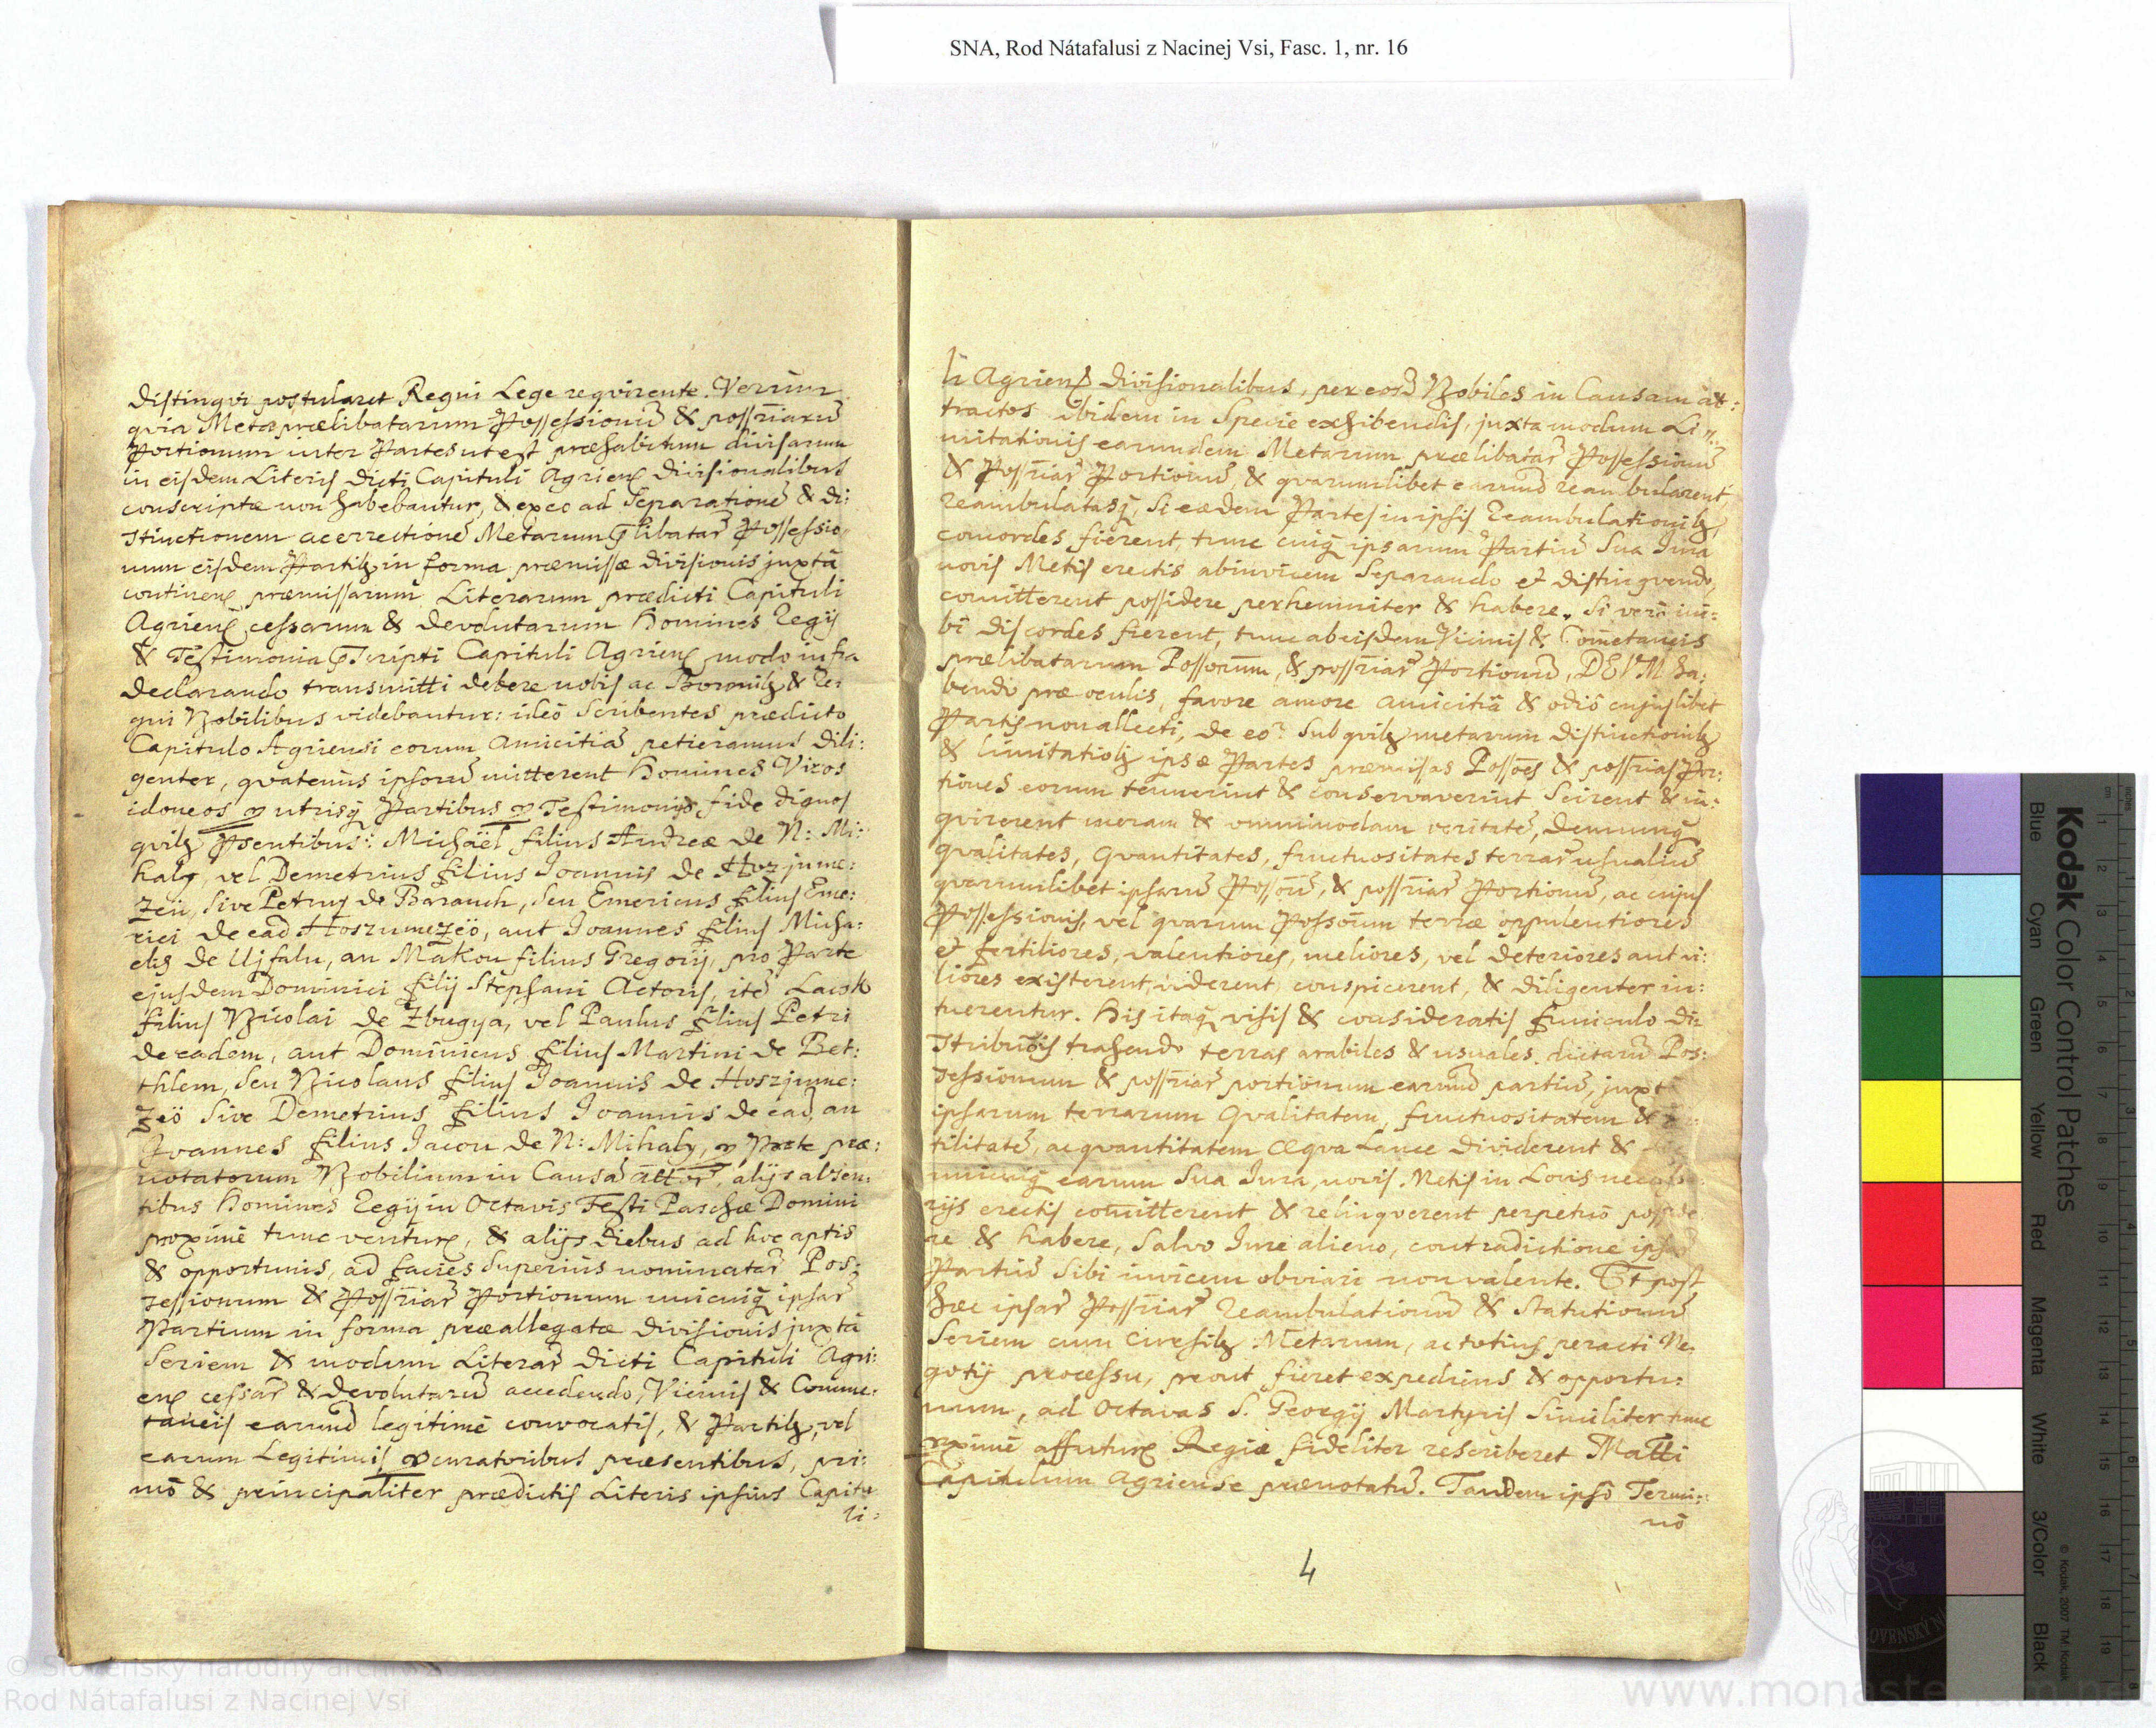 SNA, Rod Nátafalusi z Nacinej Vsi, Fasc. 1, nr. 16
distingvi postularet Regni Lege reqvirente. Verùm
qvia Metæ prælibatarum Possessionū & possr̄iarū
Portionum inter Partes ut est præhabitum divisarum
in eisdem Literis dicti Capituli Agrien̄ divisionalibus
conscriptæ non habebantur, & ex eo ad Separationē & di:
stinctionem ac errectionē Metarum p̄libatar̄ Possessio,
num eisdem Partib; in forma præmissæ divisionis juxtà
continen̄ præmissarum Literarum prædicti Capituli
Agrien̄ cessarum & devolutarum Homines Regÿ
& Testimonia p̄scripti Capituli Agrien̄ modo infra
declarando transmitti debere nobis ac Baronib; & Re:
gni Nobilibus videbantur: ideò Scribentes prædicto
Capitulo Agriensi eorum amicitiā petieramus dili:
genter, qvatenùs ipsorū mitterent Homines Viros
idoneos p utrisq̄ Partibus p Testimonijs fide dignos
qvib; p̄sentibus: Michaël filius Andreæ de N: Mi:
haly, vel Demetrius filius Joannis de Hoszjume:
zeü, sive Petrus de Baranch, seu Emericus filius Eme:
rici de eād Hoszumezeö, aut Joannes filius Micha:
elis de Ujfalu, an Makou filius Gregorÿ, pro Parte
ejusdem Dominici filÿ Stephani Actoris, itē Lacsk
filius Nicolai de Zbugya, vel Paulus filius Petri
de eadem, aut Dominicus filius Martini de Bet:
thlem, seu Nicolaus filius Joannis de Hoszjume:
zeö sive Demetrius filius Joannis de eād, an
Joannes filius Jacou de N: Mihaly, p Parte præ:
notatorum Nobilium in Causā attor̄, alijs absen:
tibus Homines Regÿ in Octavis Festi Paschæ Domini
proximè tunc venturæ, & alijs diebus ad hoc aptis
& opportunis, ad facies superiùs nominatar̄ Pos:
sessionum & Possr̄iar̄ Portionum unicuiq̄ ipsar̄
Partium in forma præallegatæ divisionis juxtà
Seriem & modum Literar̄ dicti Capituli Agri:
en̄ cessar̄ & devolutarū accedendo, Vicinis & Comme:
taneis earund̄ legitimè convocatis, & Partib; vel
earum Legitimis pcuratoribus præsentibus, pri:
mò & principaliter prædictis Literis ipsius Capitu
li:
li Agriens̄ divisionalibus, per eosd̄ Nobiles in Causam at:
tractos ibidem in Specie exhibendis, juxta modum Li
mitationis earumdem Metarum prælibatar̄ Possessionū
& Possr̄iar̄ Portionū, & qvarumlibet earund̄ reambularent,
reambulatasq̄, si eædem Partes in ipsis Reambulationib;
concordes fierent, tunc cuiq̄ ipsarum Partiū Sua Jura
novis Metis erectis abinvicem Separando et distingvendo,
comitterent possidere perhenniter & habere. Si verò ini:
bi discordes fierent, tunc ab eisdem Vicinis & Com̄etaneis
prælibatarum Possorum, & possr̄iar̄ Portionū, DEUM ha:
bendo præ oculis, favore amore amicitiâ & odiô cujuslibet
Partis non allecti, de eo: Sub qvib; metarum distinctionib;
& limitatiōb; ipsæ Partes præmissas Possoēs & possr̄ias Por:
tiones eorum tenuerint & conservaverint scirent & in:
qvirerent meram & omnimodam veritatē, demumq̄
qvalitates, Qvantitates, fructuositates terrar̄ usualiū
qvarumlibet ipsarū Possōū, & possr̄iar̄ Portionū, ac cujus
Possessionis, vel qvarum Possōum terræ oppulentiores
et fertiliores, valentiores, meliores, vel deteriores aut vi:
liores existerent, viderent, conspicerent, & diligenter in:
tuerentur. His itaq̄ visis & consideratis funiculo di:
stribuōis trahendo terras arabiles & usuales dictarū Pos:
sessionum & possr̄iar̄ portionum earund̄ partiū, juxt
ipsarum terrarum Qvalitatem, fructuositatem &
tilitatē, ac qvantitatem Æqva Lance dividerent &
unicuiq̄ earum Sua Jura, novis Metis in Locis necess
rijs erectis comitterent & relinqverent perpetuò posside
re & habere, Salvo Jure alieno, contradictione ipsar̄
Partiū Sibi invicem obviari non valente. Et post
hæc ipsar̄ Possr̄iar̄ Reambulationū & Statutionū
Seriem cum Circsib; Metarum, ac totius peracti Ne
gotÿ processu, prout fieret expediens & opportu:
num, ad Octavas S. Georgÿ Martyris Similiter tunc
pximè affuturæ Regiæ fideliter rescriberet Matti
Capitulum Agriense prænotatū. Tandem ipsô Termi:
nô
4
Kodak Color Control Patches
Blue Cyan Green Yellow Red Magenta White 3/Color Black
© Kodak, 2007 TM: Kodak
© Slovenský národný archív
Rod Nátafalusi z Nacinej Vsi
www.monasterium.net